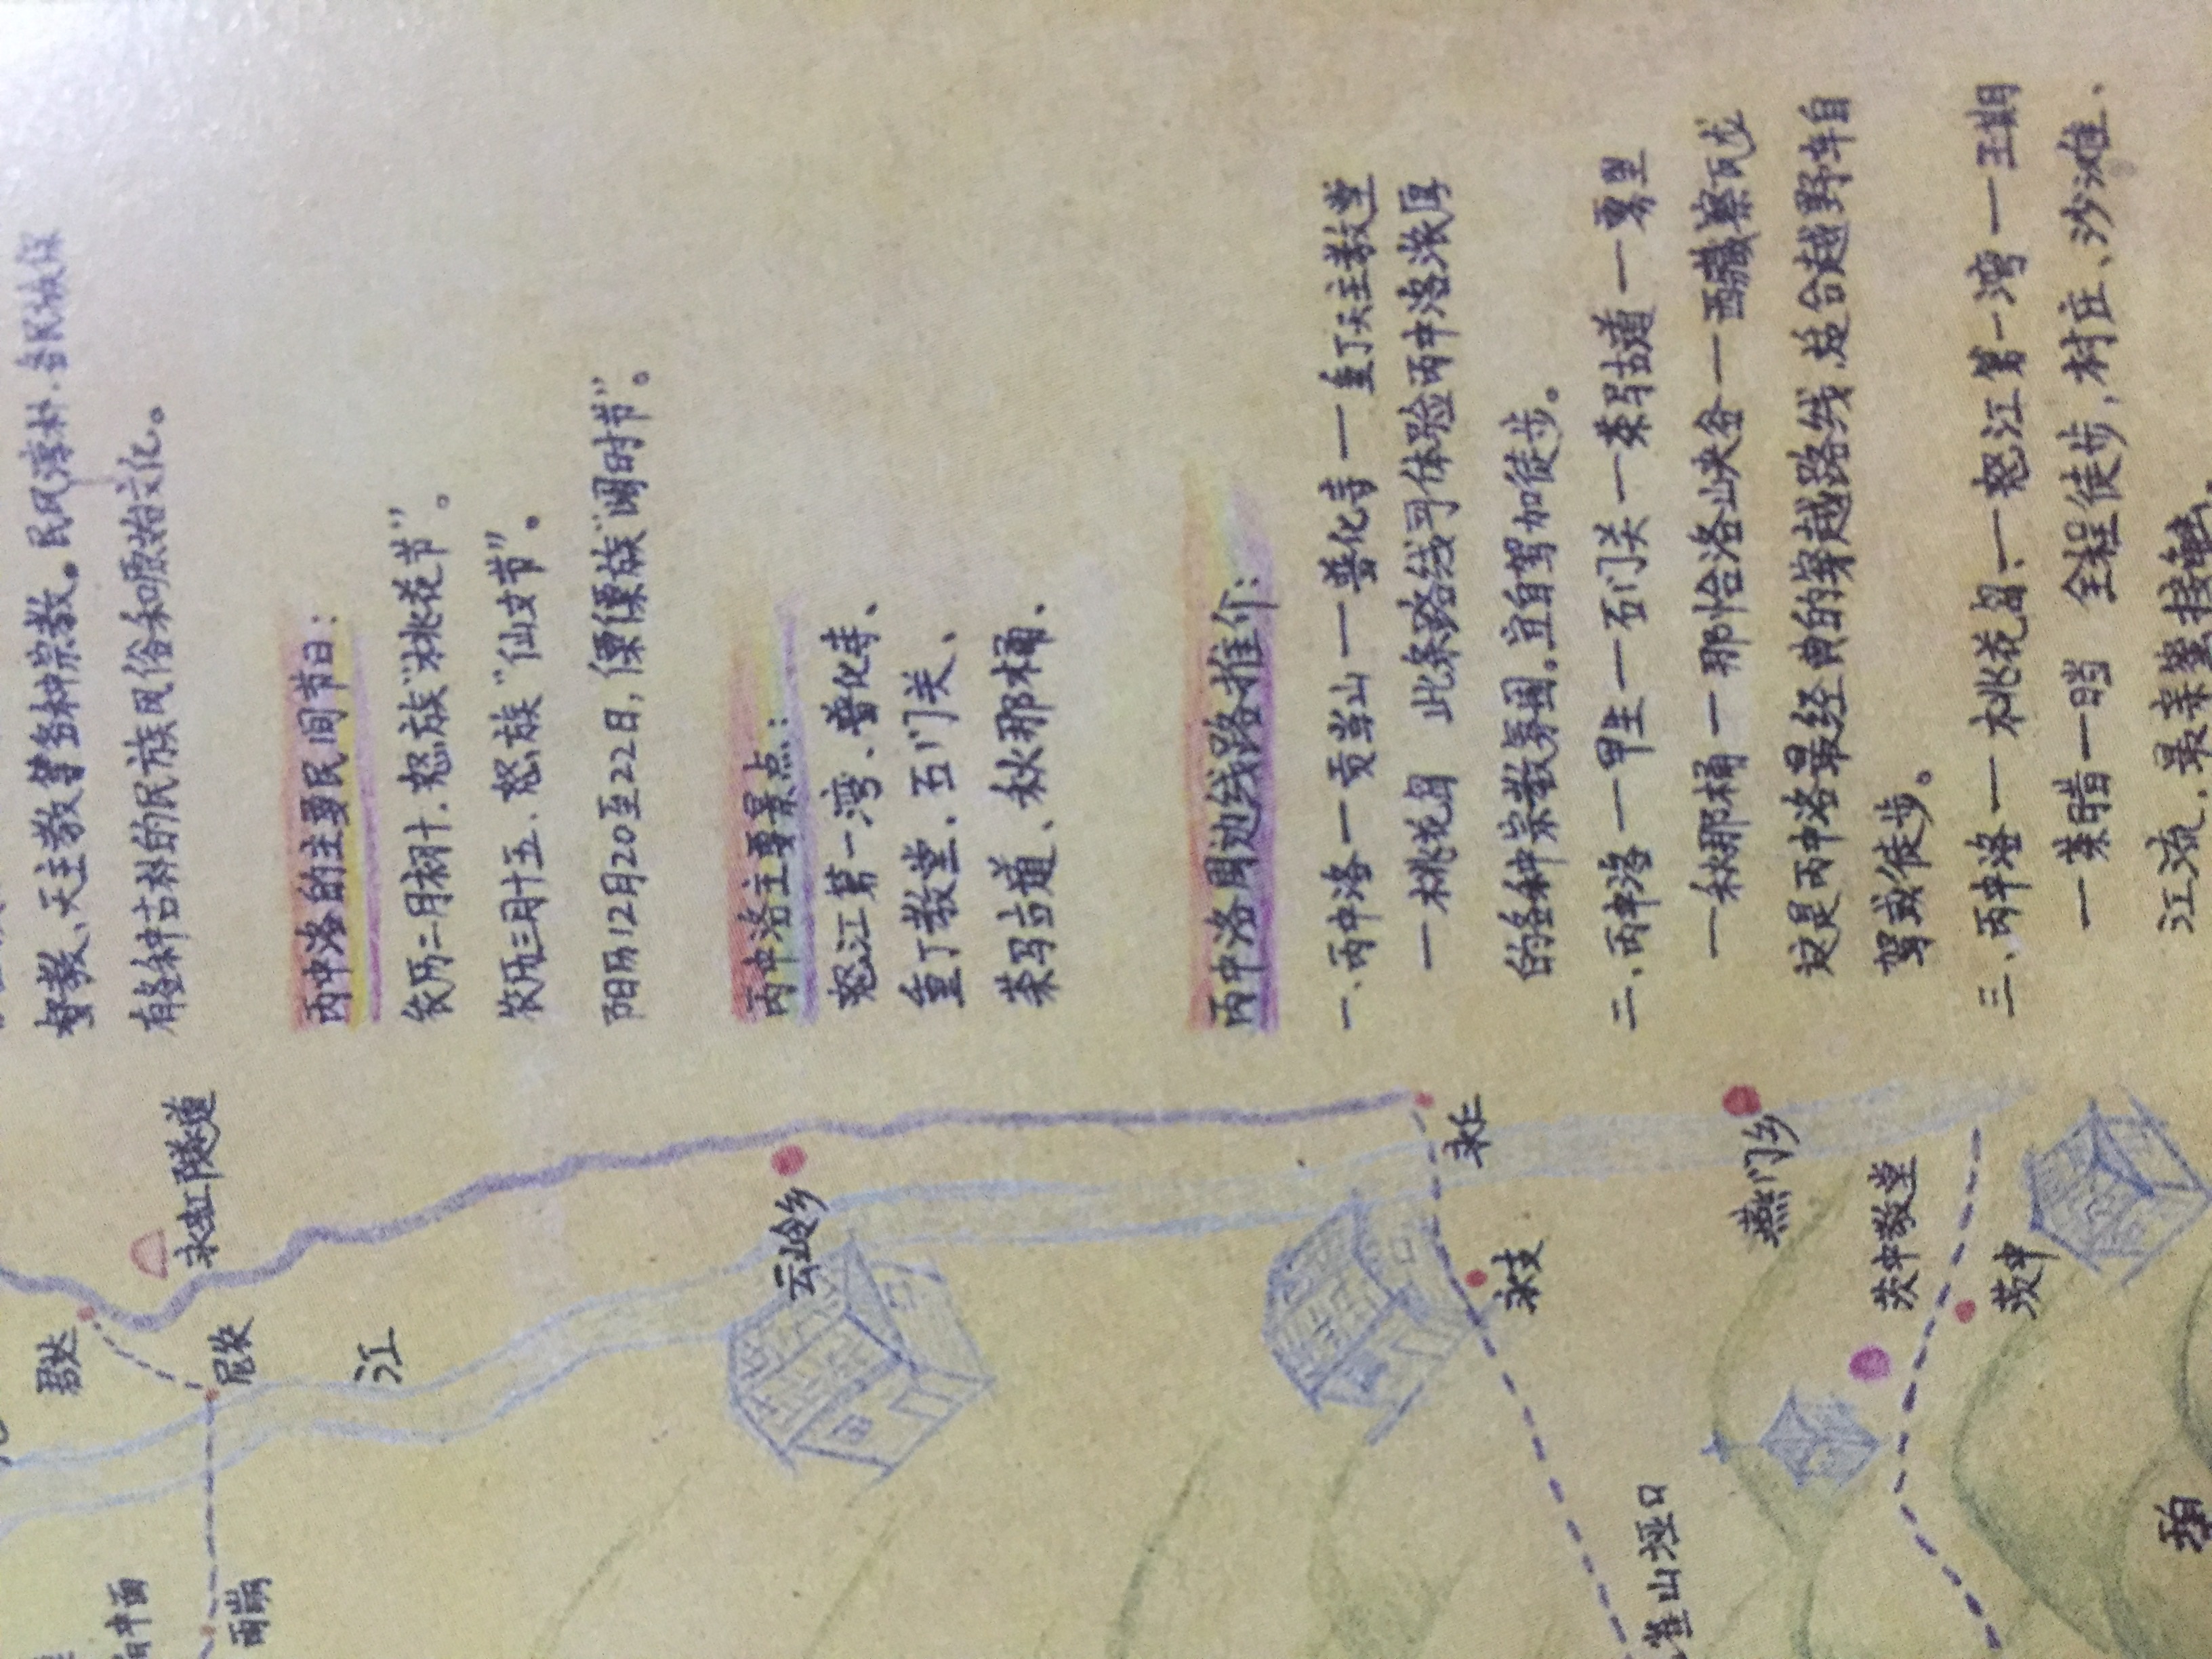 督教、天主教等多种宗教。民风淳朴.各民族保
有各种古朴的民族风俗和原始文化。
丙中洛的主要民间节日:
农历二月初十.怒族“桃花节”。
农历三月十五.怒族“仙女节”。
阳历12月20至22日,傈僳族“阔时节”。
丙中洛主要景点:
怒江第一湾、普化寺、
重丁教堂.石门关、
茶马古道、秋那桶.
丙中洛周边线路推介:
一、丙中洛一贡当山一普化寺一重丁天主教堂
一桃花岛 此条路线可体验丙中洛浓厚
的各种宗教氛围.宜自驾加徒步。
二、丙中洛一甲生一石门关一茶马古道一雾里
一秋那桶一那恰洛峡谷一西藏察瓦龙
这是丙中洛最经典的穿越路线.适合越野车自
驾或徒步。
三、丙中洛一桃花岛一怒江第一湾一王期
一茶腊一 全程徒步,村庄、沙滩、
江流.最亲密接触.
永虹隧道
尼农
江
雨崩
云岭乡
永仁
永支
燕门乡
茨中教堂
茨中
雀山垭口